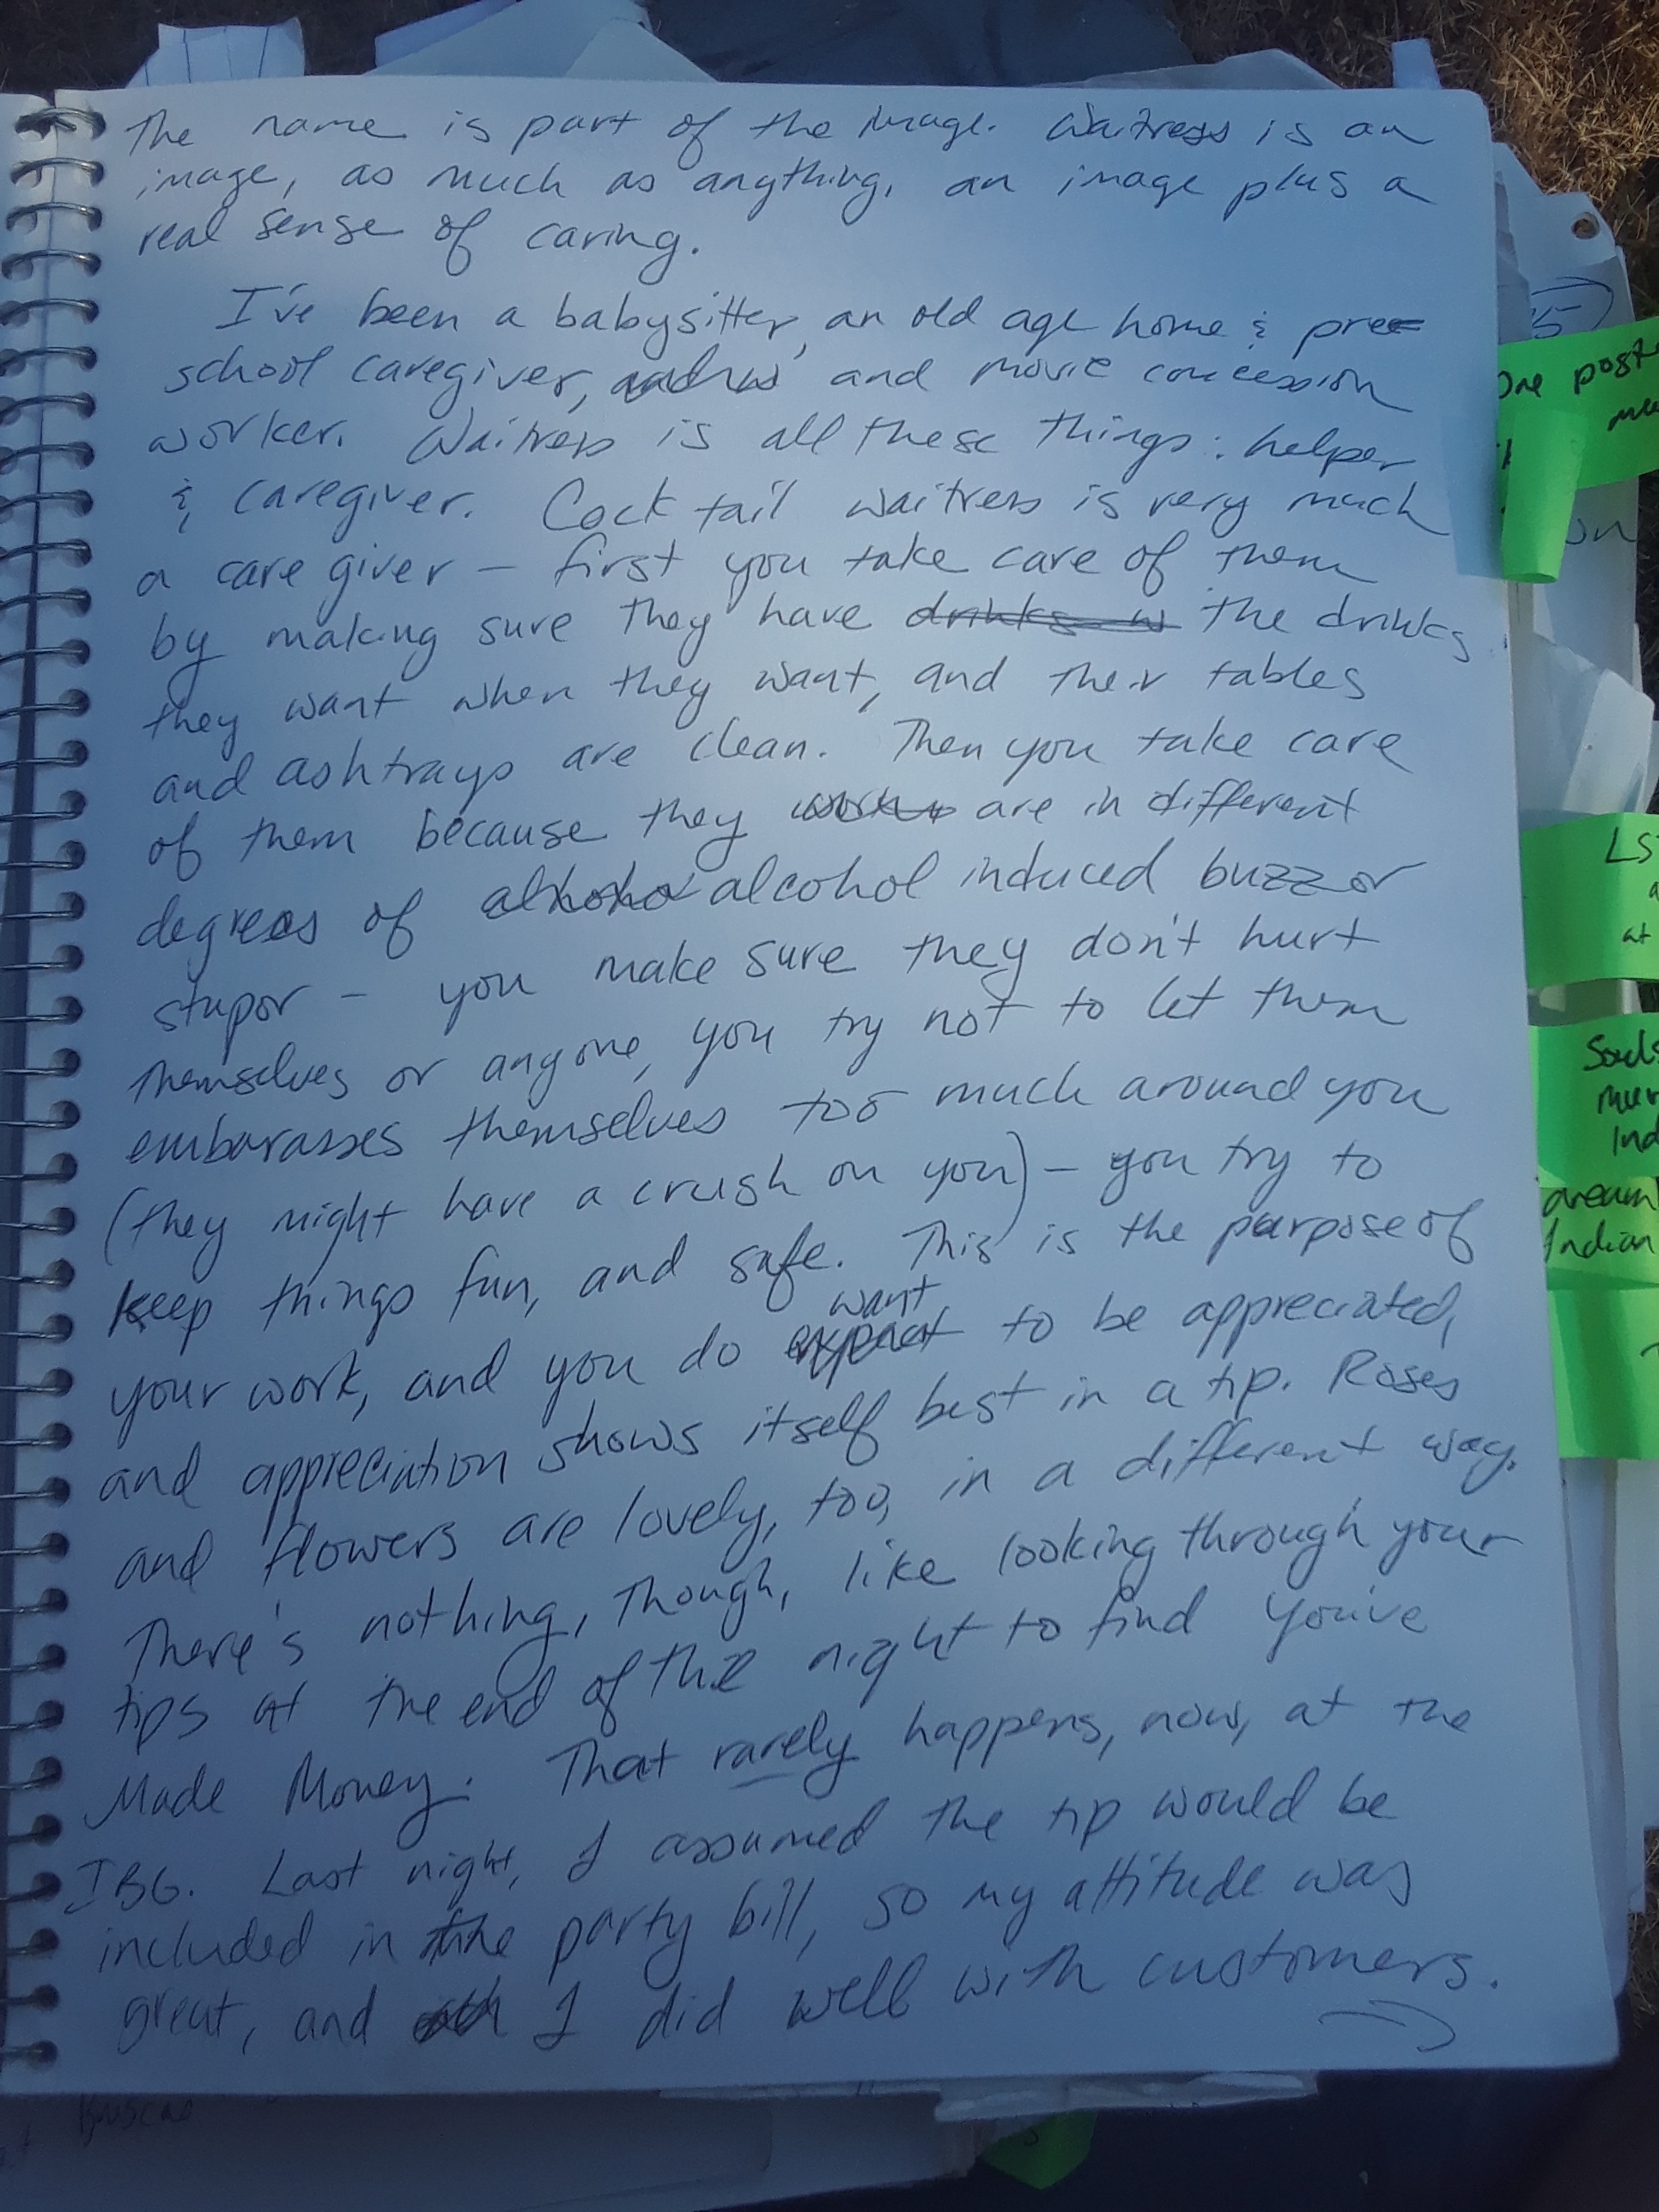 The name is part of the image. Waitress is an
image, as much as anything, an image plus a
real sense of caring.
I've been a babysitter, an old age home & pree
school caregiver, and movie concession
worker. Waitress is all these things: helper
& caregiver. Cocktail waitress is very much
a care giver – first you take care of them
by making sure they have drinks w the drinks
they want when they want, and their tables
and ashtrays are clean. Then you take care
of them because they are in different
degrees of alcohol induced buzz or
stupor – you make sure they don't hurt
themselves or anyone, you try not to let them
embarasses themselves too much around you
(they might have a crush on you) – you try to
keep things fun, and safe. This is the purpose of
want
your work, and you do expect to be appreciated,
and appreciation shows itself best in a tip. Roses
and flowers are lovely, too, in a different way.
There's nothing, though, like looking through your
tips at the end of the night to find you've
Made Money. That rarely happens, now, at the
IBG. Last night, I assumed the tip would be
included in the party bill, so my attitude was
great, and I did well with customers.
One post
LS
at
Souls
mur
Ind
dream
Indian